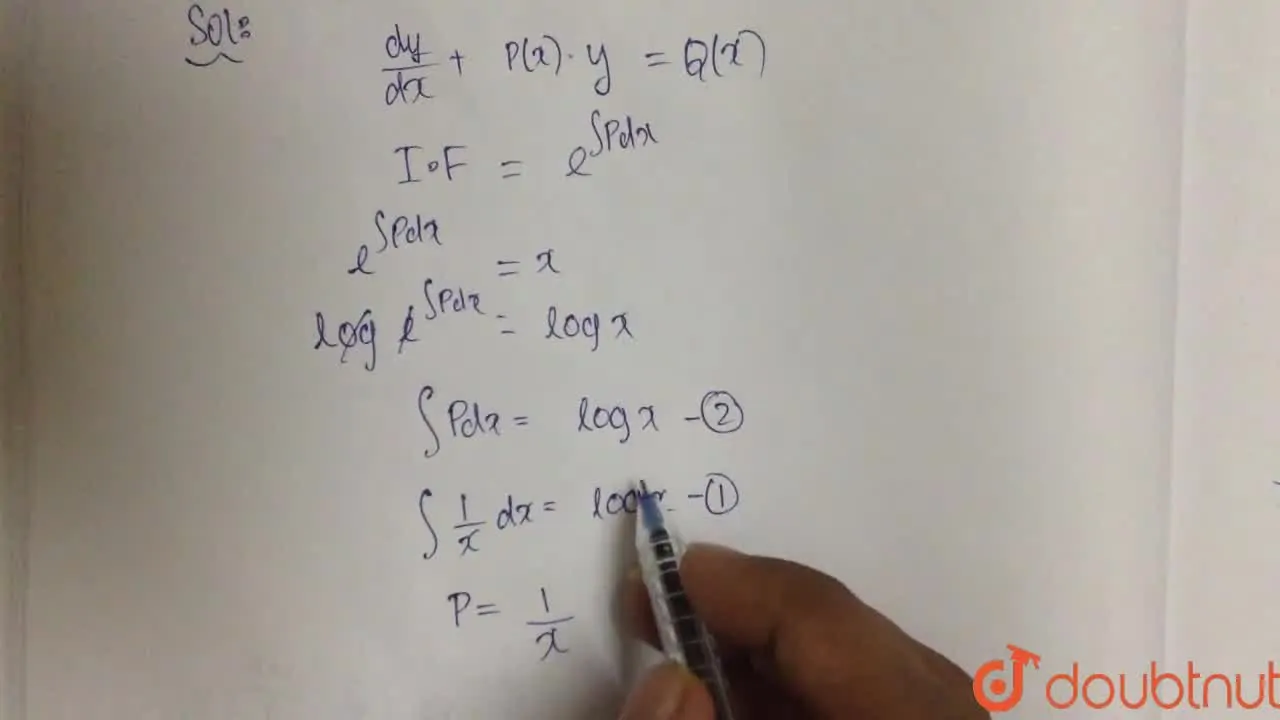 Sol:
dy/dx + P(x)·y = Q(x)
I·F = e^∫Pdx
e^∫Pdx = x
log e^∫Pdx = log x
∫Pdx = log x - ②
∫ 1/x dx = log x - ①
P = 1/x
doubtnut